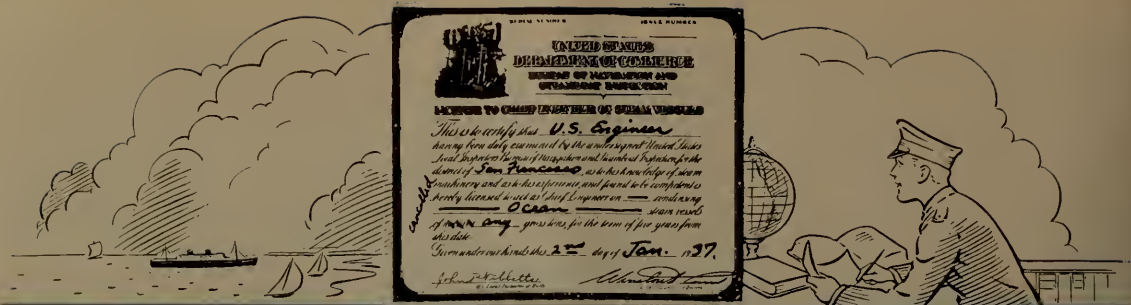 SERIAL NUMBER ISSUE NUMBER
UNITED STATES
DEPARTMENT OF COMMERCE
BUREAU OF NAVIGATION AND
STEAMBOAT INSPECTION
LICENSE TO CHIEF ENGINEER OF STEAM VESSELS
This is to certify that U.S. Engineer
having been duly examined by the undersigned United States
Local Inspectors Bureau of Navigation and Steamboat Inspection for the
district of San Francisco, as to his knowledge of steam
machinery and as to his experience, and found to be competent is
hereby licensed to act as Chief Engineer on condensing
Ocean steam vessels
of any gross tons, for the term of five years from
this date
Given under our hands this 2nd day of Jan. 1937.
cancelled